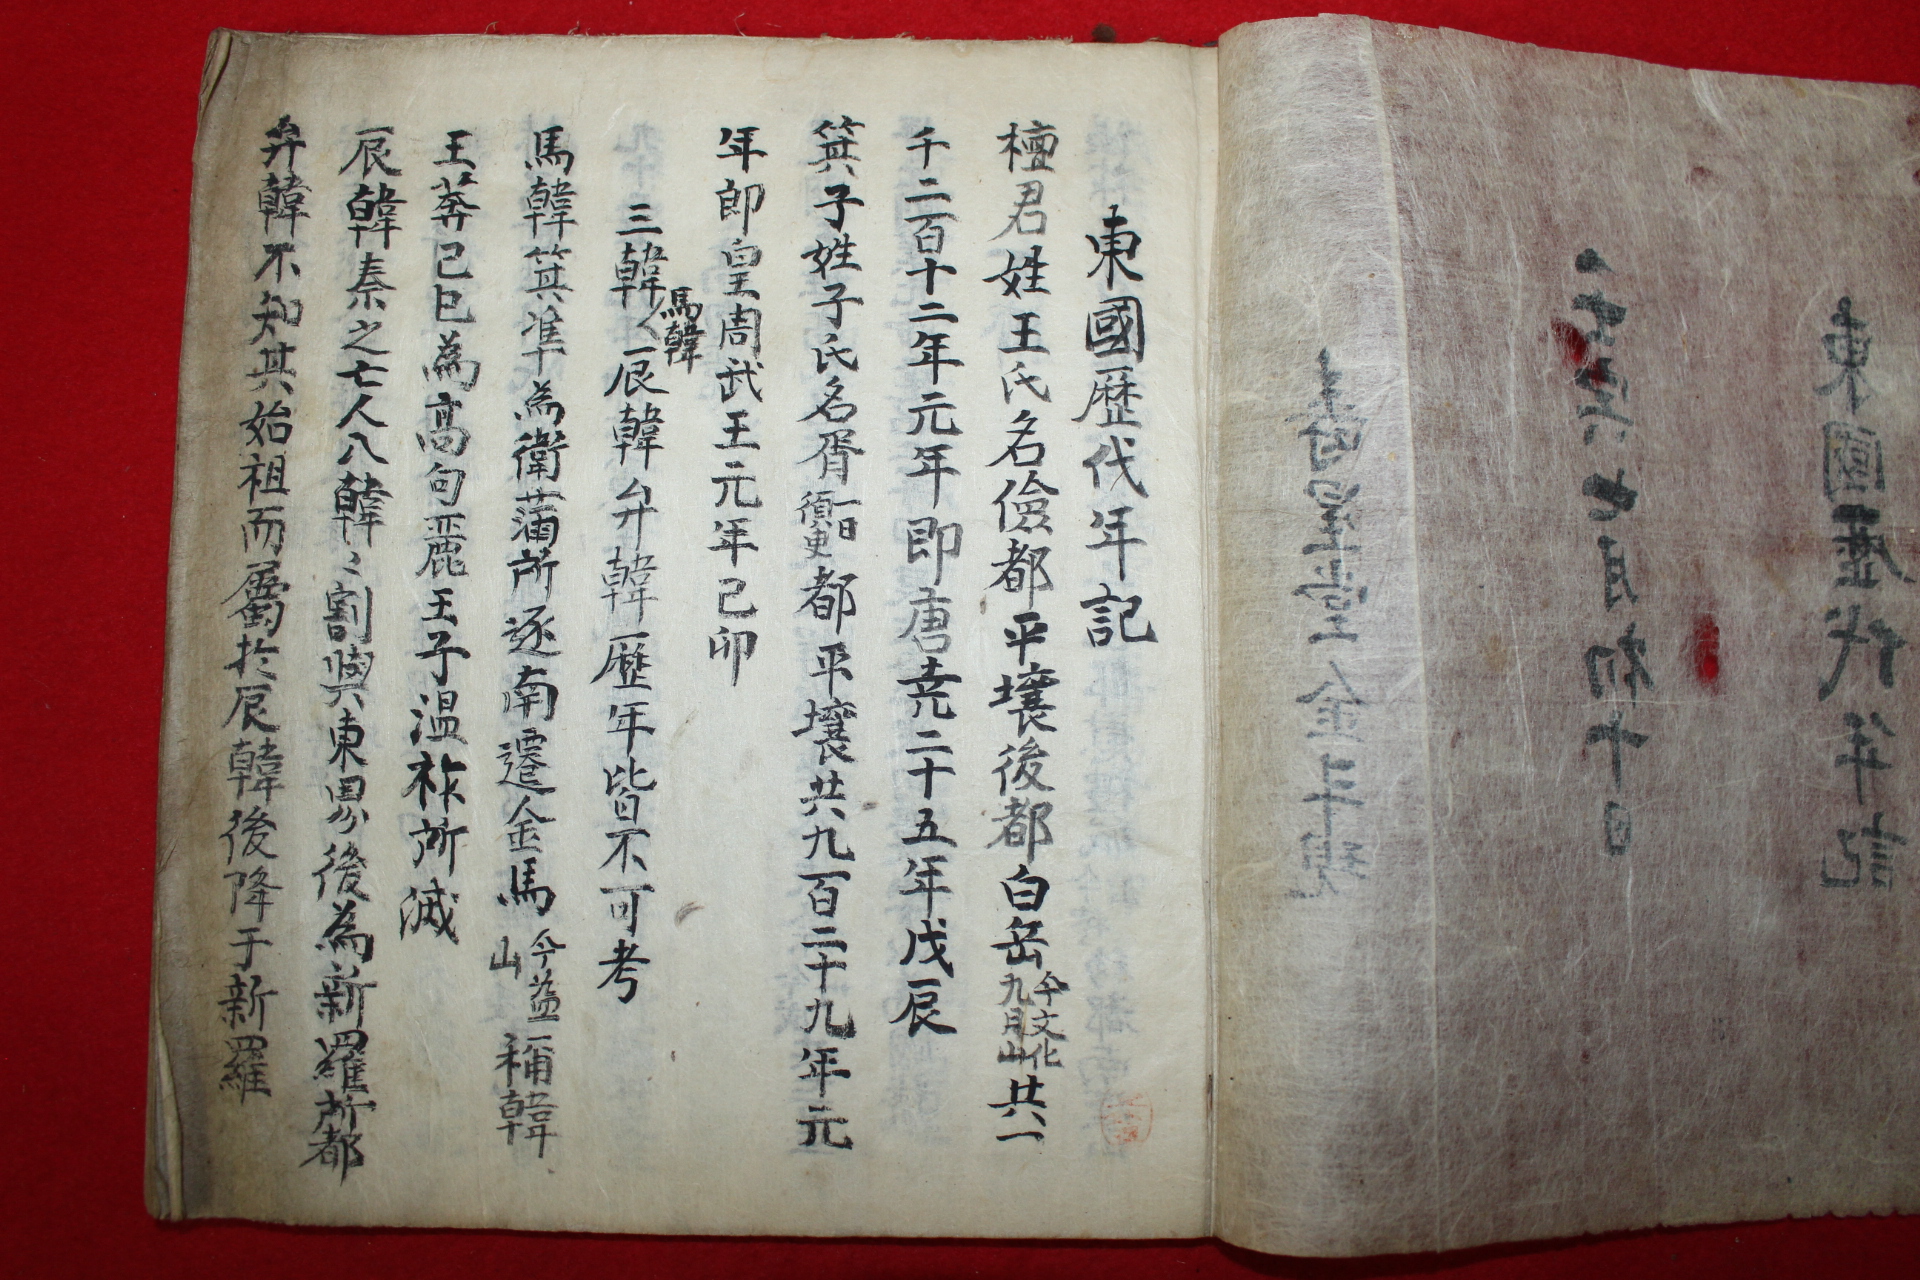 東國歷代年記
檀君姓王氏名儉都平壤後都白岳今文化九月山共一
千二百十二年元年即唐堯二十五年戊辰
箕子姓子氏名胥一曰須臾都平壤共九百二十九年元
年即皇周武王元年己卯
三韓馬韓辰韓弁韓歷年皆不可考
馬韓箕準為衛蒲所逐南遷金馬今益山稱韓
王莽己巳為高句麗王子溫祚所滅
辰韓秦之亡人入韓韓割與東界後為新羅所都
弁韓不知其始祖而屬於辰韓後降于新羅
東國歷代年記
七月初十日
壽星堂金